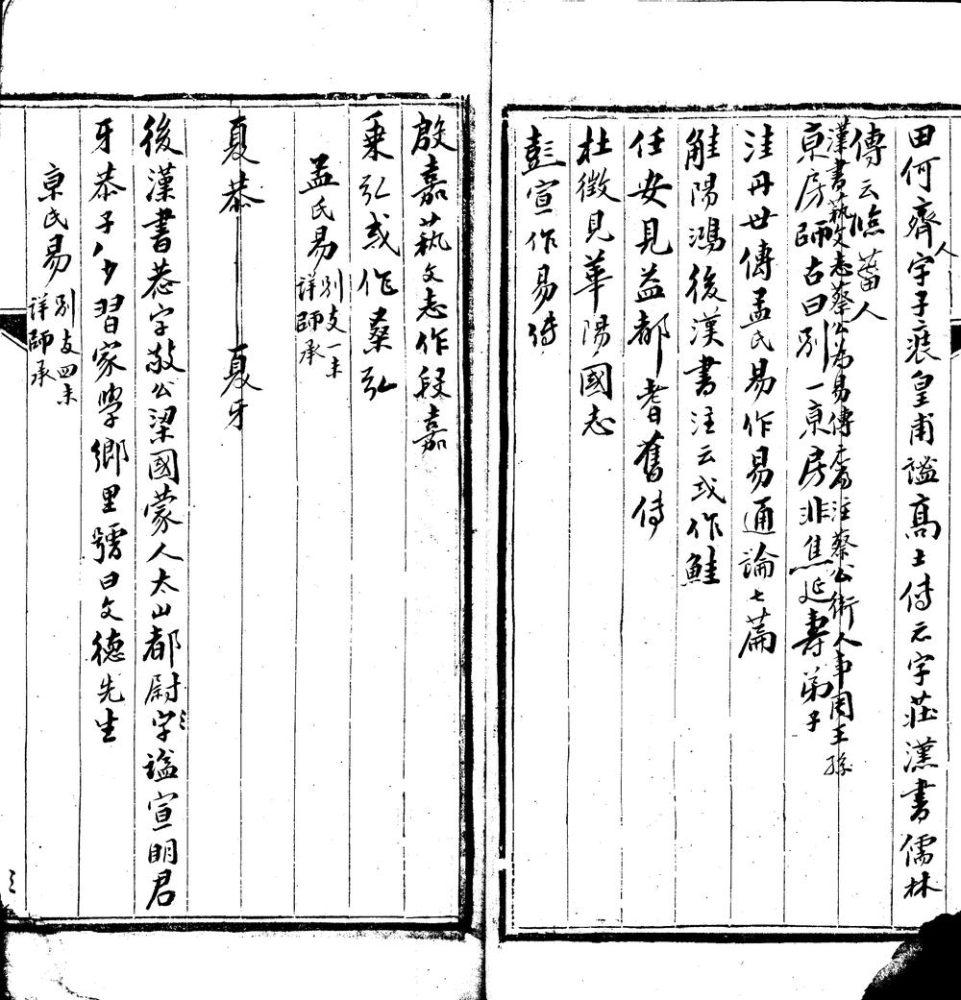 田何齊人字子裝皇甫謐髙士傳云字莊漢書儒林
傳云臨菑人
漢書藝文志蔡公為易傳二篇注蔡公衛人事周王孫
京房師古曰別一京房非焦延壽弟子
洼丹世傳孟氏易作易通論七篇
觟陽鴻後漢書注云或作鮭
任安見益都耆舊傳
杜微見華陽國志
彭宣作易傳
殷嘉蓺文志作段嘉
乗弘或作桑弘
孟氏易 別支一未詳師承
夏恭 夏牙
後漢書恭字敬公梁國蒙人太山都尉謚宣明君
牙恭子少習家學鄉里號曰文德先生
京氏易 別支四未詳師承
三